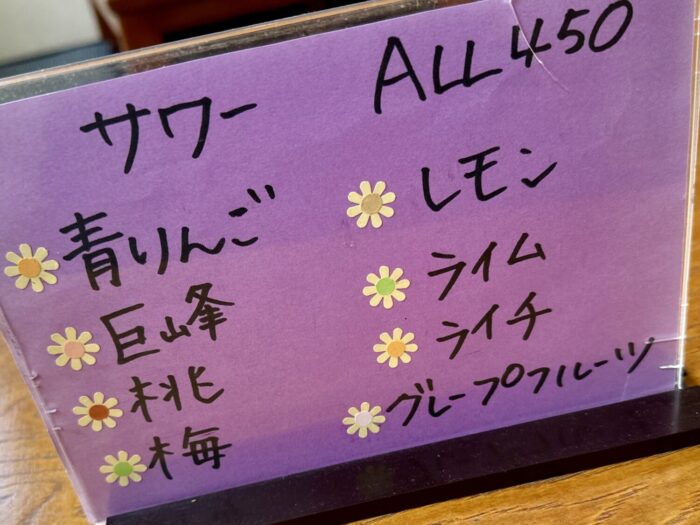 サワー ALL450
青りんご
巨峰
桃
梅
レモン
ライム
ライチ
グレープフルーツ